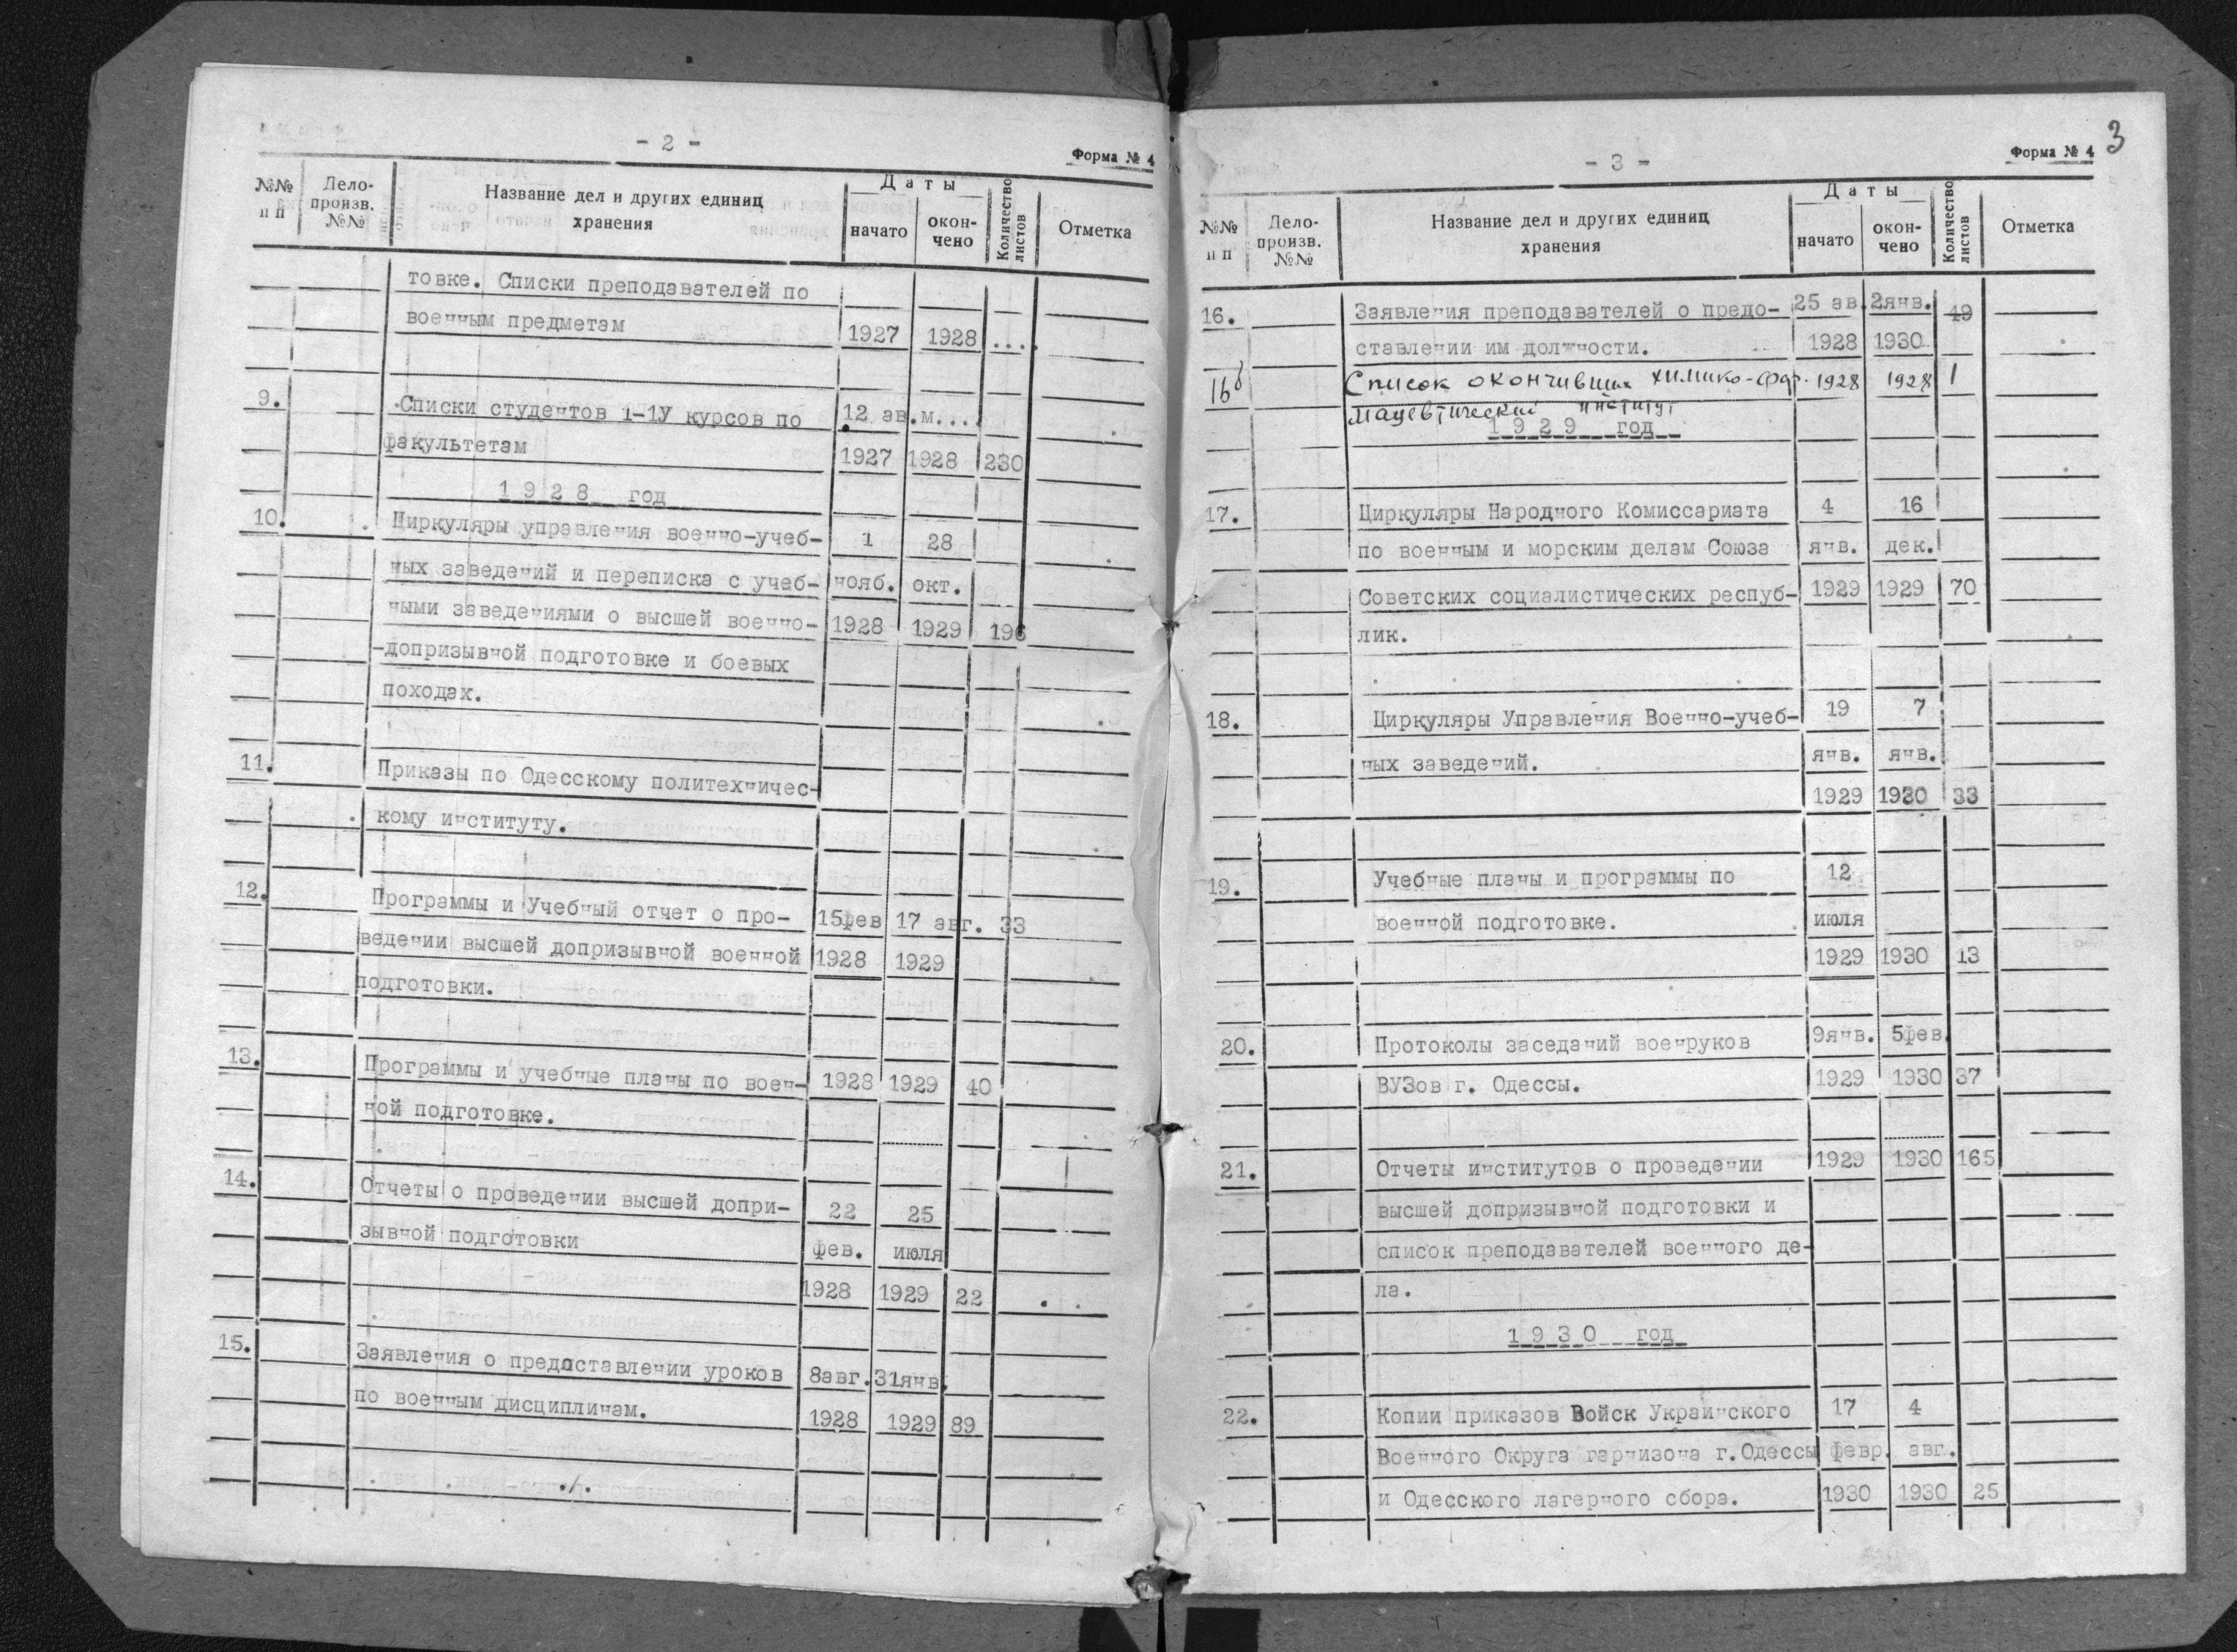 - 2 -
Форма № 4
№№ п п
Дело-произв. №№
Название дел и других единиц хранения
Даты
начато
окон-чено
Количество листов
Отметка
товке. Списки преподавателей по
военным предметам 1927 1928 ....
9. Списки студентов 1-1У курсов по 12 ав.м....
факультетам 1927 1928 230
1928 год
10. Циркуляры управления военно-учеб- 1 28
ных заведений и переписка с учеб- нояб. окт.
ными заведениями о высшей военно- 1928 1929 196
-допризывной подготовке и боевых
походах.
11. Приказы по Одесскому политехничес-
кому институту.
12. Программы и Учебный отчет о про- 15фев 17 авг. 33
ведении высшей допризывной военной 1928 1929
подготовки.
13. Программы и учебные планы по воен- 1928 1929 40
ной подготовке.
14. Отчеты о проведении высшей допри- 22 25
зывной подготовки фев. июля
1928 1929 22
15. Заявления о предоставлении уроков 8авг. 31янв.
по военным дисциплинам. 1928 1929 89
./.
3
- 3 -
Форма № 4
№№ п п
Дело-произв. №№
Название дел и других единиц хранения
Даты
начато
окон-чено
Количество листов
Отметка
16. Заявления преподавателей о предо- 25 ав. 2янв. 49
ставлении им должности. 1928 1930
16б Список окончивших химико-фар- 1928 1928 1
мацевтический институт
1929 год
17. Циркуляры Народного Комиссариата 4 16
по военным и морским делам Союза янв. дек.
Советских социалистических респуб- 1929 1929 70
лик.
18. Циркуляры Управления Военно-учеб- 19 7
ных заведений. янв. янв.
1929 1930 33
19. Учебные планы и программы по 12
военной подготовке. июля
1929 1930 13
20. Протоколы заседаний военруков 9янв. 5фев.
ВУЗов г. Одессы. 1929 1930 37
21. Отчеты институтов о проведении 1929 1930 165
высшей допризывной подготовки и
список преподавателей военного де-
ла.
1930 год
22. Копии приказов Войск Украинского 17 4
Военного Округа гарнизона г.Одессы февр. авг.
и Одесского лагерного сбора. 1930 1930 25